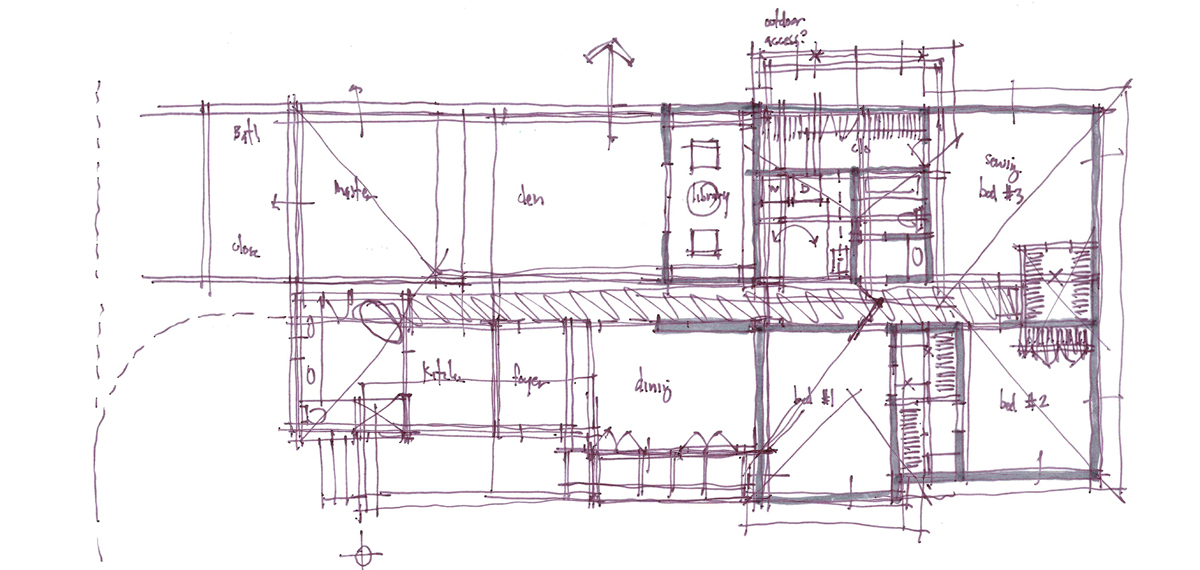 outdoor
access?
Bath
Master
den
library
clo
W
D
sewing
bed #3
close
Kitchen
foyer
dining
bed #1
bed #2